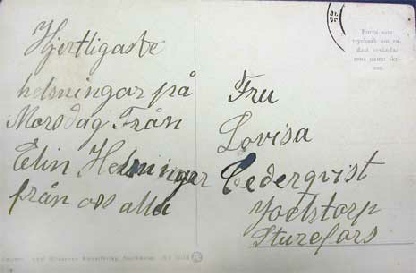 Hjertligaste
helsningar på
Morsdag Från
Elin Helsningar
från oss alla
Fru
Lovisa
Cederqvist
Joelstorp
Sturefors